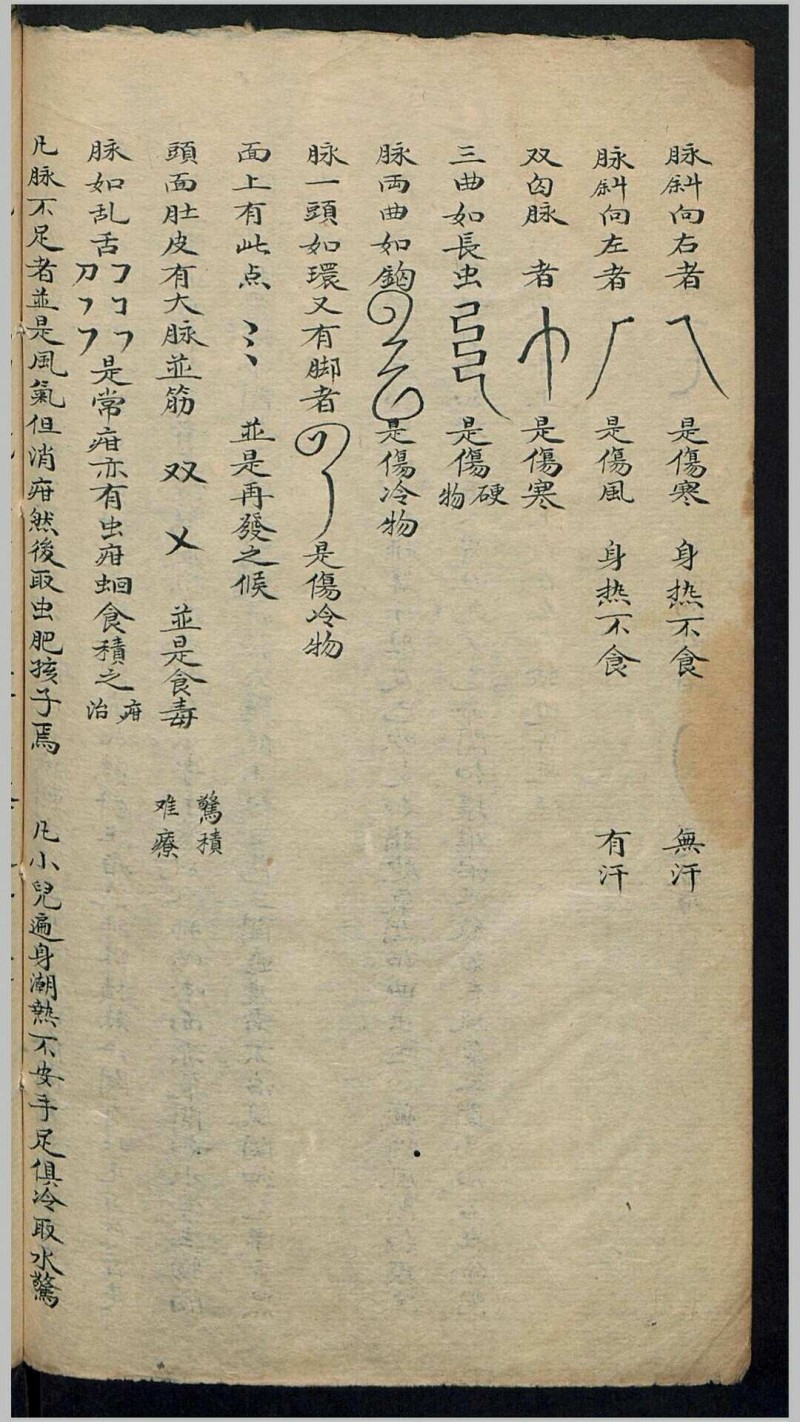 脉斜向右者 是傷寒 身热不食 無汗
脉斜向左者 是傷風 身热不食 有汗
双勾脉 者 是傷寒
三曲如長虫 是傷硬物
脉两曲如鈎 是傷冷物
脉一頭如環又有脚者 是傷冷物
面上有此点 並是再發之候
頭面肚皮有大脉並筋 双 乂 並是食毒 驚積难療
脉如乱舌 是常疳亦有虫疳蛔食積之疳治
凡脉不足者並是風氣但消疳然後取虫肥孩子焉 凡小兒遍身潮熱不安手足俱冷取水驚